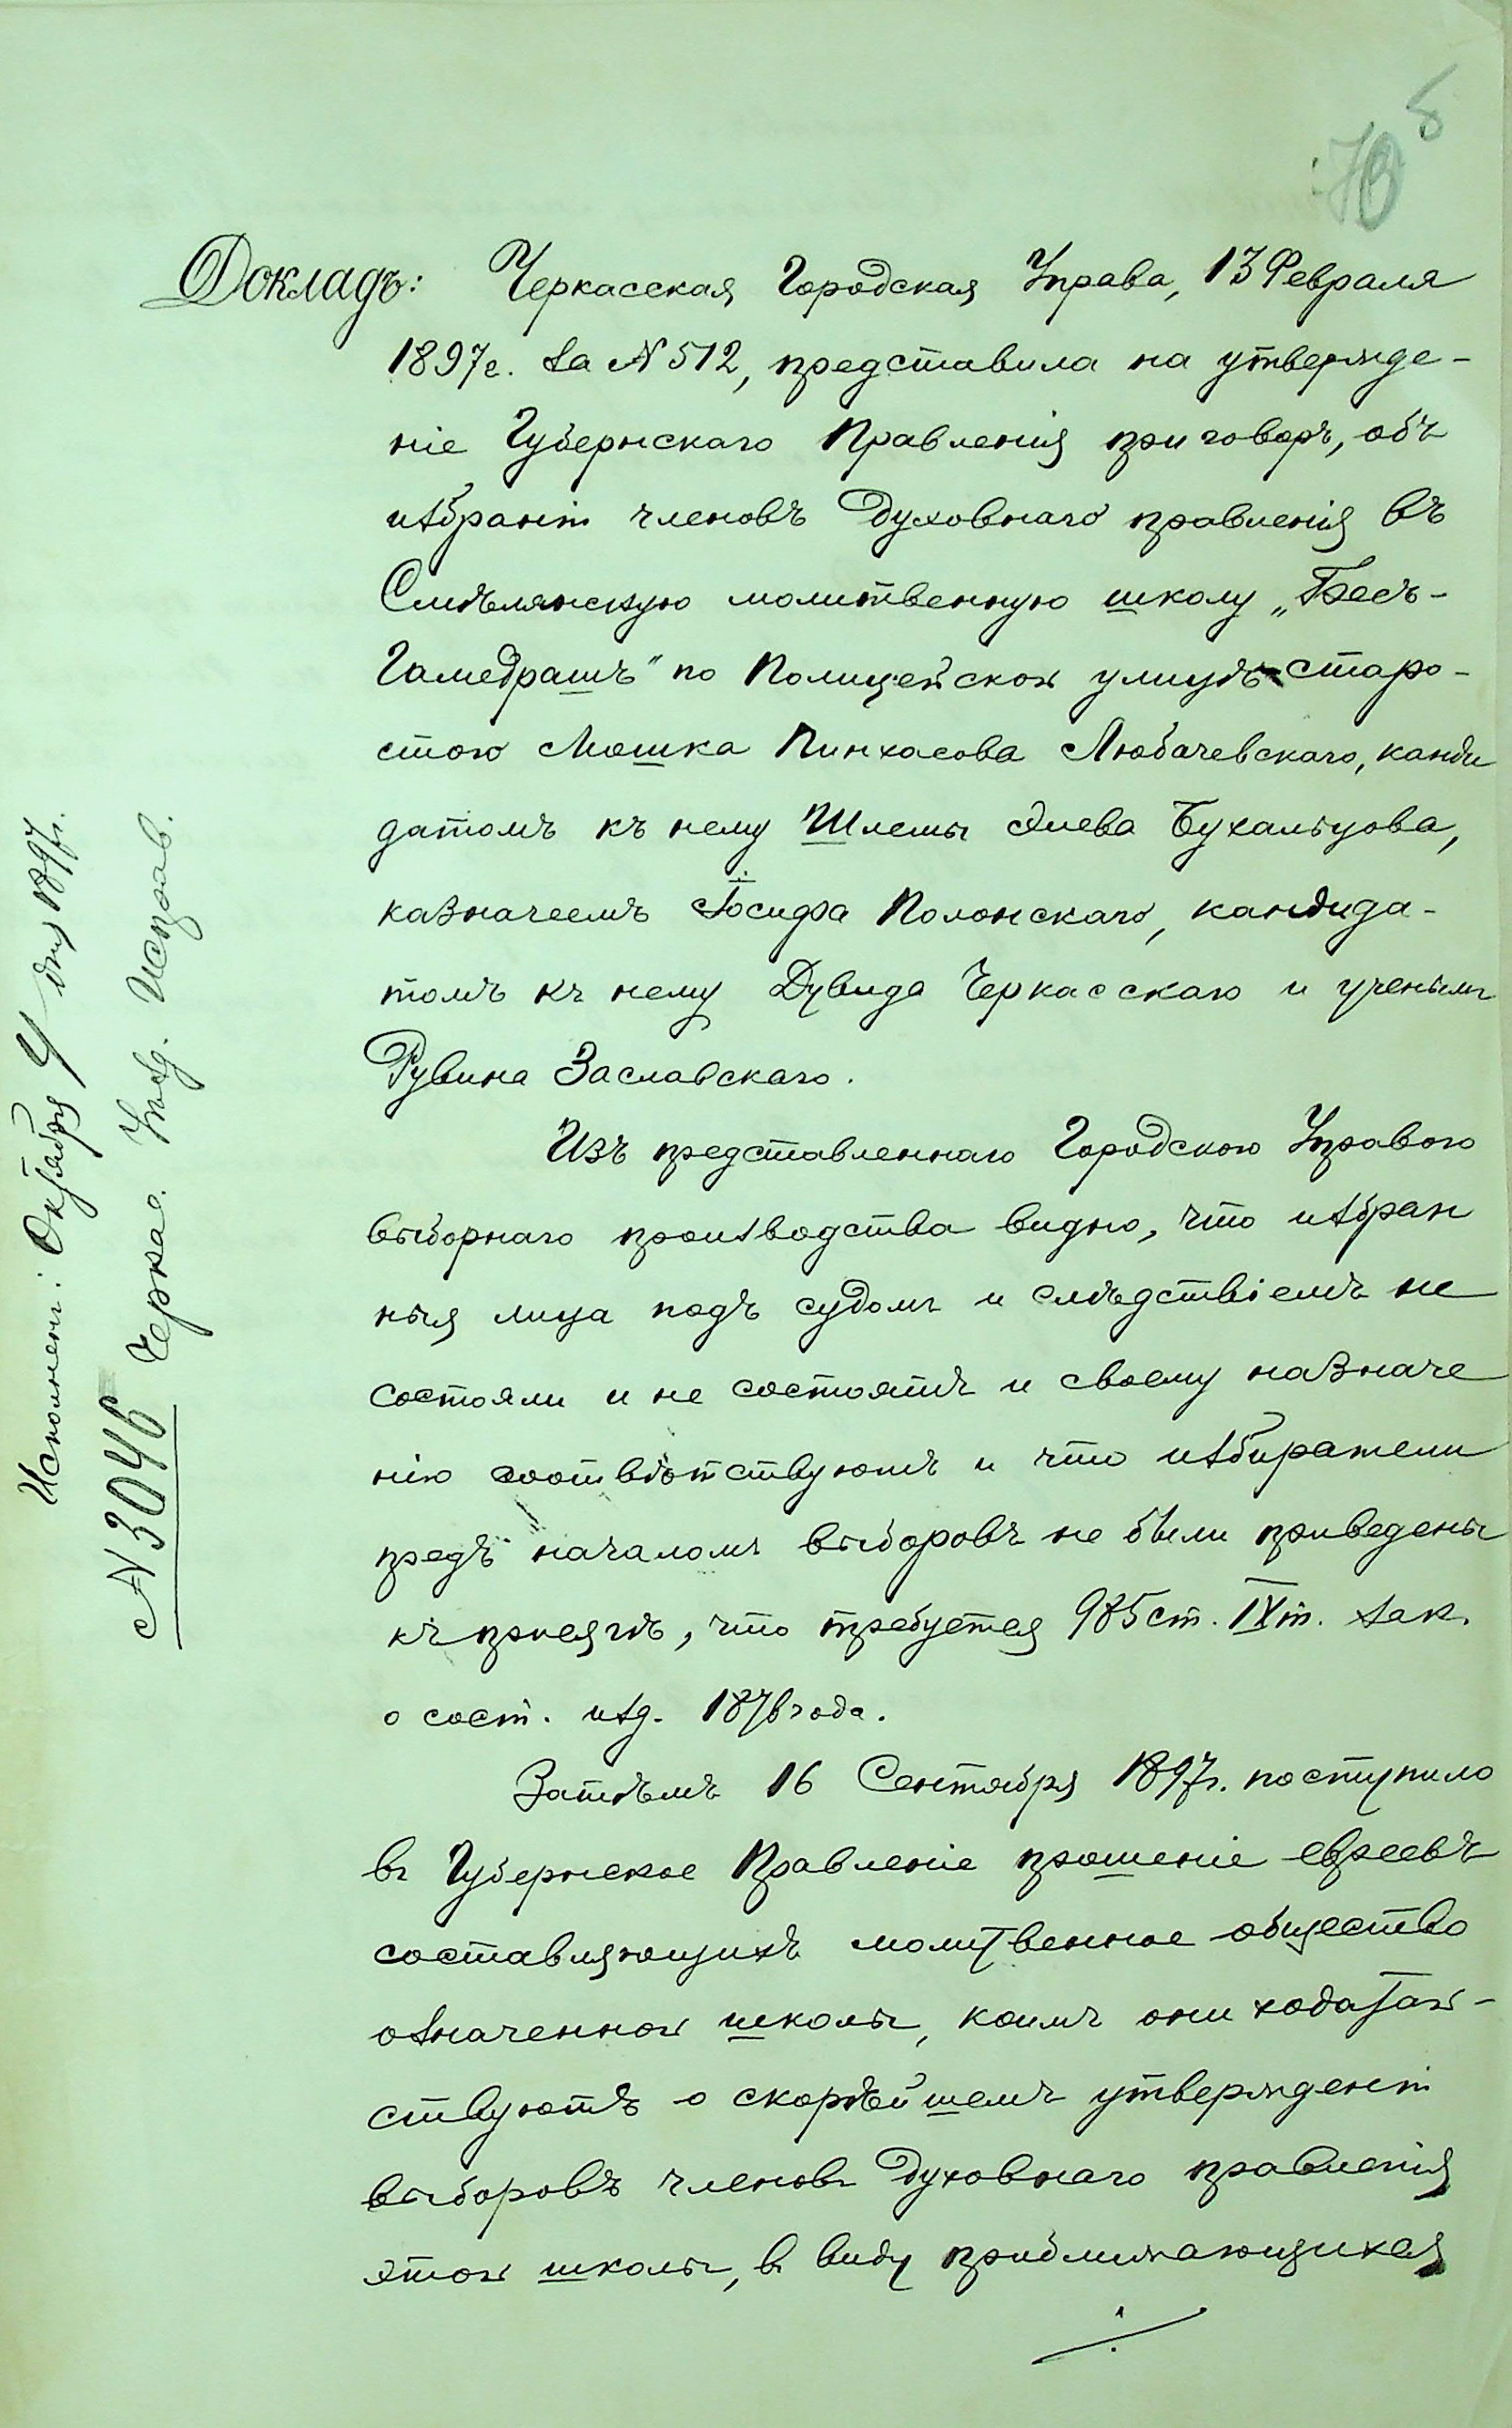 Докладъ: Черкасская Городская Управа, 13 Февраля
1897г. за № 512, представила на утвержде-
ніе Губернскаго Правленія приговоръ, объ
избраніи членовъ Духовнаго правленія въ
Смѣлянскую молитвенную школу „Бесъ-
Гамедрашъ" по Полицейской улицѣ старо-
стою Мошка Пинхасова Любачевскаго, канди
датомъ къ нему Шлемы Элева Бухальцова,
казначеемъ Іосифа Полонскаго, кандида-
томъ къ нему Дувида Черкасскаго и ученымъ
Рувина Заславскаго.
Изъ представленнаго Городскою Управою
выборнаго производства видно, что избран
ныя лица подъ судомъ и слѣдствіемъ не
состояли и не состоятъ и своему назначе
нію соотвѣтствуютъ и что избиратели
предъ началомъ выборовъ не были приведены
къ присягѣ, что требуется 985 ст. IX т. зак.
о сост. изд. 1876 года.
Затѣмъ 16 Сентября 1897г. поступило
въ Губернское Правленіе прошеніе евреевъ
составляющихъ молитвенное общество
означенной школы, коимъ они ходатай-
ствуютъ о скорѣйшемъ утвержденіи
выборовъ членовъ Духовнаго правленія
этой школы, в виду приближающихся
Исполненъ: Октября 4 дня 1897г.
№ 3046 Черкас. Уѣзд. Исправ.